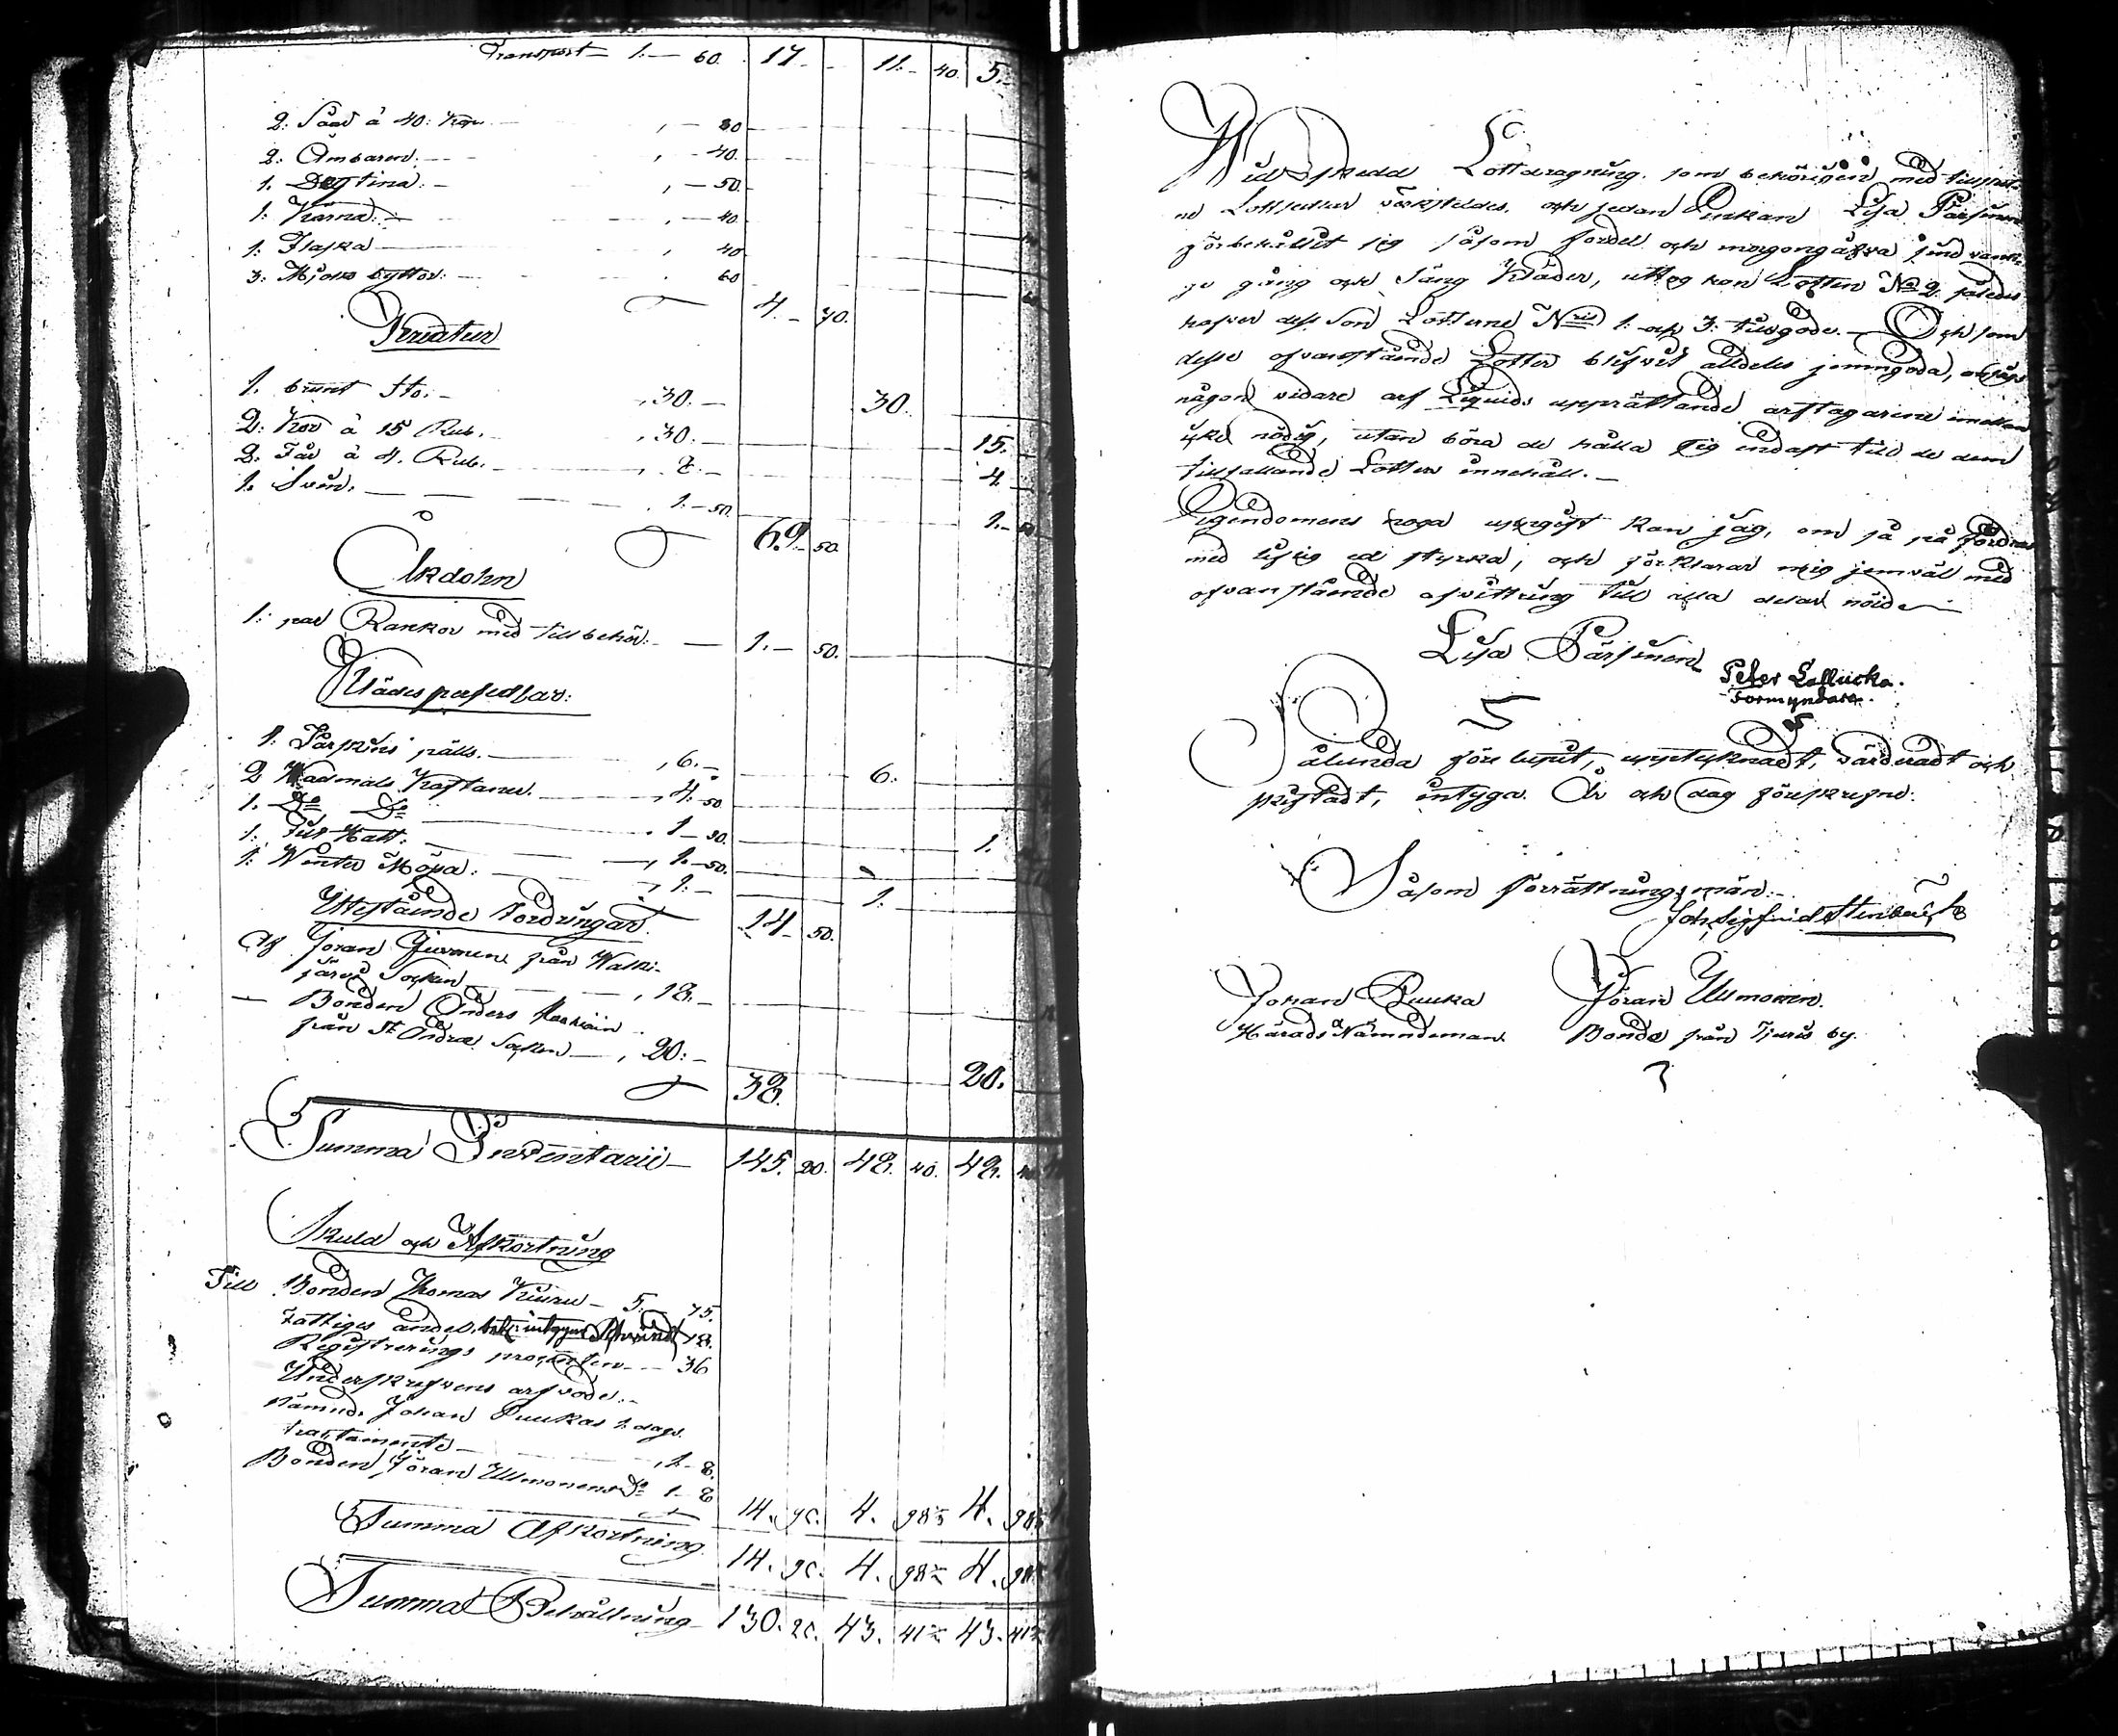 Transport 1.— 60. 17 - 11. 40. 5.
2: Såar à 40. Kop. , — 80
2: Ämbaren. , — 40.
1. Degtina. , — 50.
1: Kärna. , — 40
1: Flaska , 40
3: Mjölks byttor. 60
4. — 70.
Kreatur
1. brunt Sto. , 30.— 30.
2: Kor à 15 Rub. , 30.— 15.
2. Får à 4. Rub. , 8.— 4.
1. Svin. , 1.— 50. 1.—
69. 50.
Åkdohn
1: par Kankor med tillbehör. 1.— 50.
Klädespersedlar:
1: Fårskins pälls. , 6.— 6.
2 Wadmals Kaftaner. , 4. 50
1. Do Do , 1— 50. 1.
1: Filt Hatt. , 1.— 50.
1: Winter Mössa. , 1.— 1.
14 50.
Utestående Fordringar.
Af Jöran från Walki-
järvi Socken , 18.—
— Bonden Anders
från St Andrae Socken , 20.— 20.
38.
Summa Inventarii 145. 20. 48. 40. 48. 40
Skuld och Afkortning
Till Bonden Thomas Kiuru 5. 75.
Fattiges andel 18.
Registrerings procenten 36
Underskrifvens arfvode.
Nämnd. Johan Puukas 1. dags
tractamente , 1— 8.
Bonden Jöran Ullmonens Do 1— 8
14. 90. 4. 98 4. 98
Summa Afkortning 14. 90. 4. 98 4. 98
Summa Behållning 130. 20. 43. 41 43. 41
Wid skedd Lottdragning, som behörigen med
ne Lottsedlar värkstäldes, och sedan Enkan Lisa Pärsinen
förbehållit sig såsom fördel och morgongåfva sine
ge gång och Säng Kläder, uttog hon Lotten No 2. således
hafver dess Son Lotterne Nris 1. och 3. tillgodo.— Och som
desse ofvanstående Lotter blifvit alldeles jemngoda,
någon vidare arf Liquids upprättande arftagarine emellan
icke nödig, utan böra de hålla sig endast till de dem
tillfallande Lotters innehåll.—
Egendomens noga uppgift kan jag, om så på fordras
med liflig ed styrka, och förklarar mig jemväl med
ofvanstående afvittring till alla delar nöjd.—
Lisa Pärsinen
Peter Lallucka.
Förmyndare.
Sålunda förelupit, upptecknadt, värderadt och
skiftadt, intyga. År och dag föreskrefne.
Såsom förrättningsmän.
Joh. Sigfrid Stenbäck
Johan Puuka Jöran Ullmonen.
Härads Nämndeman. Bonde från Tjuris by.